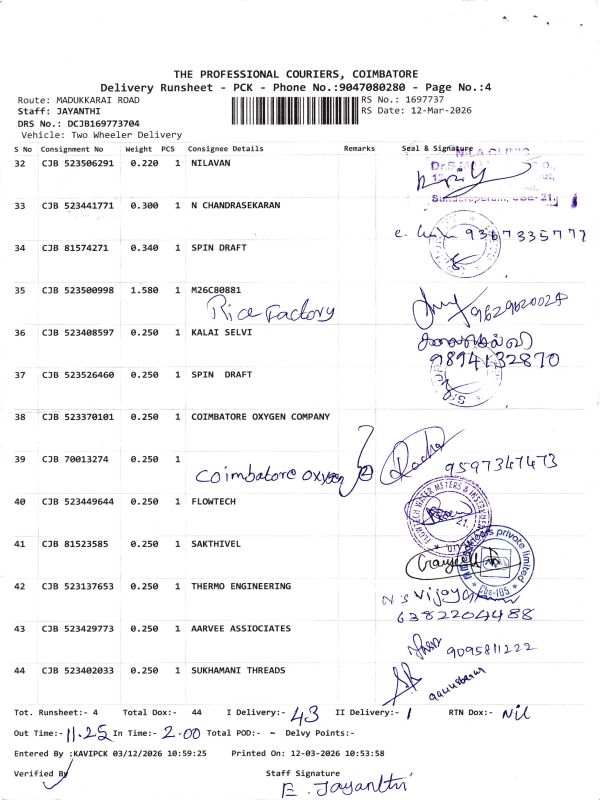 THE PROFESSIONAL COURIERS, COIMBATORE
Delivery Runsheet - PCK - Phone No.:9047080280 - Page No.:4
Route: MADUKKARAI ROAD RS No.: 1697737
Staff: JAYANTHI RS Date: 12-Mar-2026
DRS No.: DCJB169773704
Vehicle: Two Wheeler Delivery
S No Consignment No Weight PCS Consignee Details Remarks Seal & Signature
32 CJB 523506291 0.220 1 NILAVAN
33 CJB 523441771 0.300 1 N CHANDRASEKARAN
34 CJB 81574271 0.340 1 SPIN DRAFT
35 CJB 523500998 1.580 1 M26C80881
Rice Factory
36 CJB 523408597 0.250 1 KALAI SELVI
9894132870
37 CJB 523526460 0.250 1 SPIN DRAFT
38 CJB 523370101 0.250 1 COIMBATORE OXYGEN COMPANY
39 CJB 70013274 0.250 1
Coimbatore oxygen 2 9597347473
40 CJB 523449644 0.250 1 FLOWTECH
FLOWTECH WATER METERS & INSTRUMENTS
41 CJB 81523585 0.250 1 SAKTHIVEL
private limited
Cbe-105
42 CJB 523137653 0.250 1 THERMO ENGINEERING
6382204488
43 CJB 523429773 0.250 1 AARVEE ASSIOCIATES
9095811222
44 CJB 523402033 0.250 1 SUKHAMANI THREADS
Tot. Runsheet:- 4 Total Dox:- 44 I Delivery:- 43 II Delivery:- 1 RTN Dox:- Nil
Out Time:- 11.25 In Time:- 2.00 Total POD:- ~ Delvy Points:-
Entered By :KAVIPCK 03/12/2026 10:59:25 Printed On: 12-03-2026 10:53:58
Verified By Staff Signature
E. Jayanthi